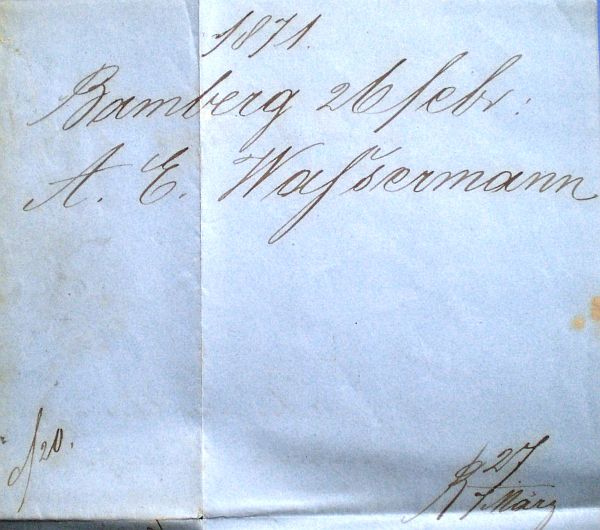 1871.
Bamberg 26 febr:
A. E. Wasſsermann
20.
R 27
1 März